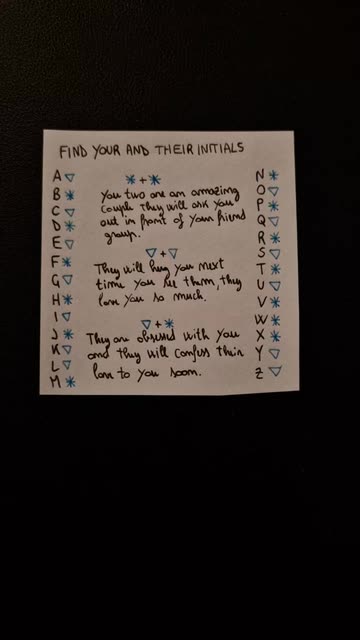 FIND YOUR AND THEIR INITIALS
A ▽
B *
C ▽
D *
E ▽
F *
G ▽
H *
I ▽
J *
K ▽
L ▽
M *
* + *
You two are an amazing
couple they will ask you
out in front of your friend
group.
▽ + ▽
They will hug you next
time you see them, they
love you so much.
▽ + *
They are obsessed with you
and they will confess their
love to you soon.
N *
O ▽
P *
Q ▽
R *
S ▽
T *
U ▽
V *
W *
X *
Y ▽
Z ▽